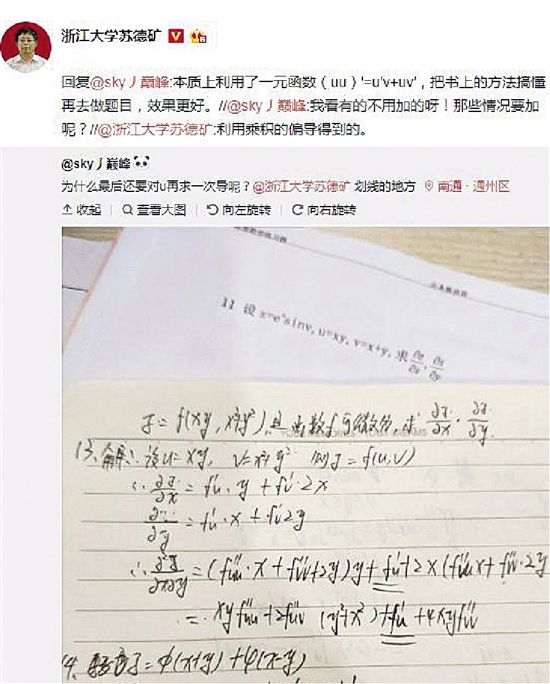 浙江大学苏德矿
回复@sky丿巅峰:本质上利用了一元函数（uu）'=u'v+uv'，把书上的方法搞懂
再去做题目，效果更好。//@sky丿巅峰:我看有的不用加的呀！那些情况要加
呢？//@浙江大学苏德矿:利用乘积的偏导得到的。
@sky丿巅峰
为什么最后还要对u再求一次导呢？@浙江大学苏德矿 划线的地方 南通·通州区
收起 查看大图 向左旋转 向右旋转
11 设 z=e^u sinv, u=xy, v=x+y, 求 ∂z/∂x, ∂z/∂y
z=f(xy, x²+y²),且函数f可微分,求 ∂z/∂x, ∂z/∂y
13、解:设u=xy, v=x²+y² 则z=f(u,v)
∴ ∂z/∂x = f'u·y + f'v·2x
∂z/∂y = f'u·x + f'v2y
∴ ∂²z/∂x∂y = (f''uu·x + f''uv+2y)y + f'u+2x(f''vu x + f''vv·2y
= xyf''uu+2f''uv (y²+x²)+f'u+4xyf''vv
z=φ(x+y)+φ(x-y)